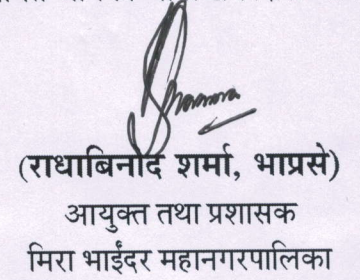 (राधाबिनोद शर्मा, भाप्रसे)
आयुक्त तथा प्रशासक
मिरा भाईंदर महानगरपालिका